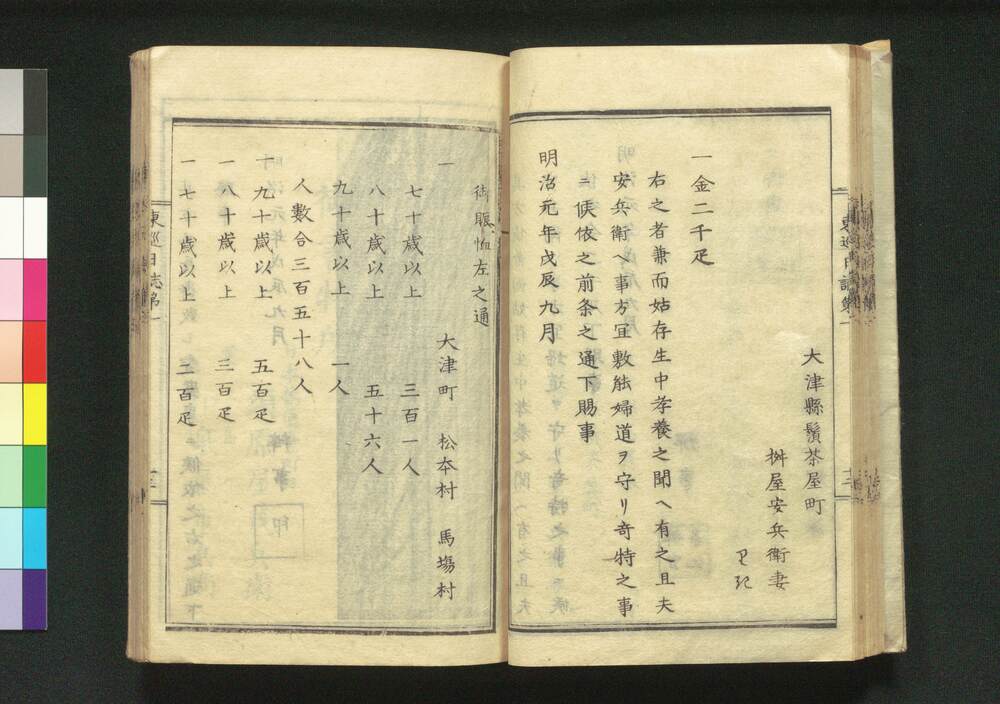 大津縣鬢茶屋町
桝屋安兵衛妻
一金二千疋
右之者兼而姑存生中孝養之聞ヘ有之且夫
安兵衛ヘ事方宜敷能婦道ヲ守リ奇特之事
ニ候依之前条之通下賜事
明治元年戊辰九月
御賑恤左之通
一 大津町 松本村 馬場村
七十歳以上 三百一人
八十歳以上 五十六人
九十歳以上 一人
人數合三百五十八人
九十歳以上 五百疋
一八十歳以上 三百疋
一七十歳以上 二百疋
東巡日志第二
東巡日志第二
十二
印